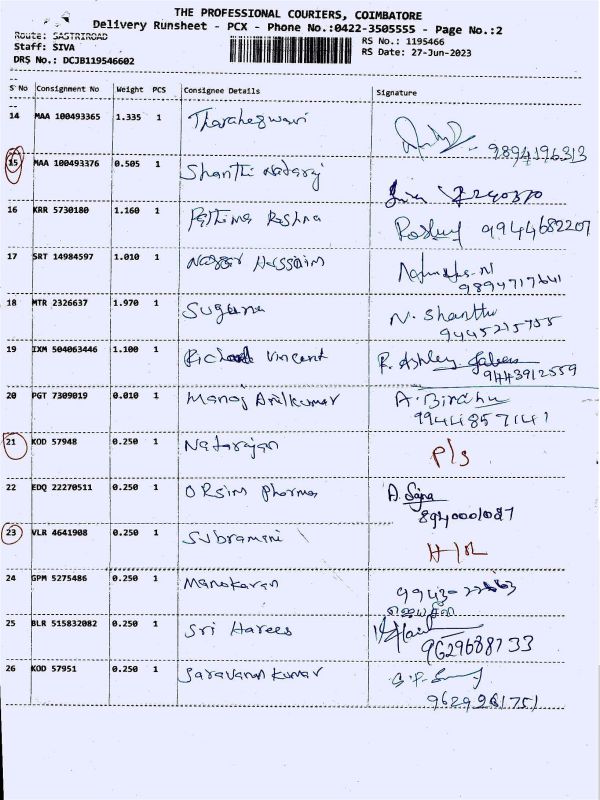 THE PROFESSIONAL COURIERS, COIMBATORE
Delivery Runsheet - PCX - Phone No.:0422-3505555 - Page No.:2
Route: SASTRIROAD
RS No.: 1195466
Staff: SIVA
RS Date: 27-Jun-2023
DRS No.: DCJB119546602
S No Consignment No Weight PCS Consignee Details Signature
14 MAA 100493365 1.335 1 Tharaheswari
9894196313
15 MAA 100493376 0.505 1 Shanthi Nataraj
16 KRR 5730180 1.160 1 Fathima Roshna
9944682207
17 SRT 14984597 1.010 1 Nasser Hussaim
9894717641
18 MTR 2326637 1.970 1 Suguna N. Shanthi
9445215755
19 IXM 504063446 1.100 1 Richard Vincent R. Ashley
9443912559
20 PGT 7309019 0.010 1 Manoj Arulkumar A. Bindhu
9944857141
21 KOD 57948 0.250 1 Natarajan P/S
22 EDQ 22270511 0.250 1 ORsim Pharma
23 VLR 4641908 0.250 1 Subramani
24 GPM 5275486 0.250 1 Manokaran
25 BLR 515832082 0.250 1 Sri Harees
9629688733
26 KOD 57951 0.250 1 Saravanan Kumar
9629261751